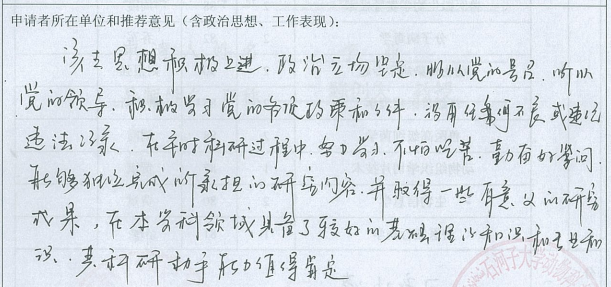 申请者所在单位和推荐意见(含政治思想、工作表现):
该生思想积极上进,政治立场坚定,服从党的号召,听从
党的领导,积极学习党的各项政策和文件,没有任何不良或违纪
违法记录。在平时科研过程中,努力学习,不怕吃苦,勤奋好学问,
能够独立完成所承担的研究内容,并取得一些有意义的研究
成果,在本学科领域具备了较好的基础理论知识和专业知
识,其科研动手能力值得肯定
石河子大学动物科